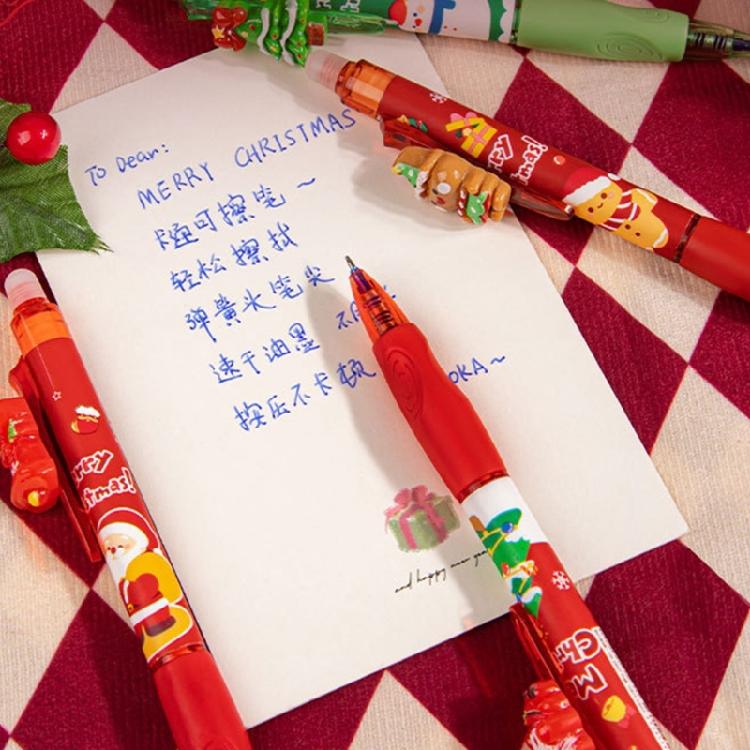 To Dear:
MERRY CHRISTMAS
卡通可擦笔~
轻松擦拭
弹簧头笔尖
速干油墨 不
按压不卡顿 OKA~
and happy new yea
Merry
Christmas!
Merry
Christmas!
M
Ch